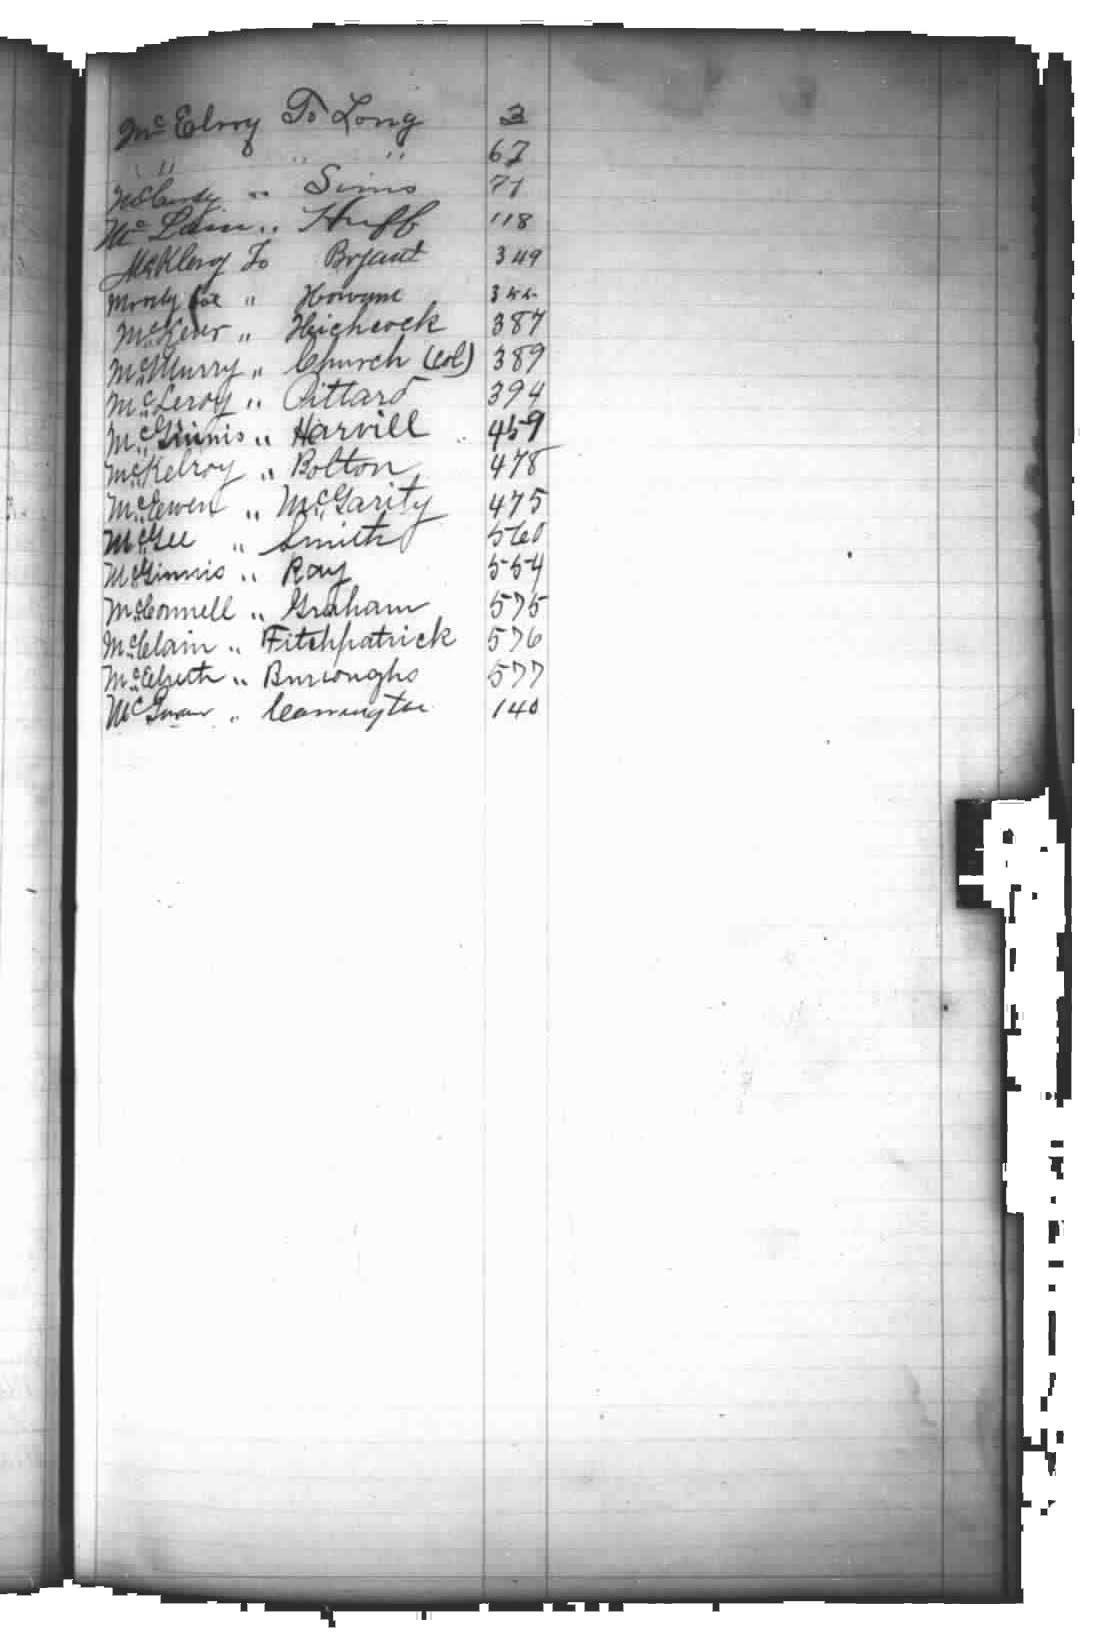 Mc Elroy To Long 3
" " " 67
" Sims 71
Mc Lain " Huff 118
McKleroy To Bryant 349
Moody " 
McKever " Highcock 387
McMurry " Church (Col) 389
McLeroy " Pittard 394
McGinnis " Harvill 459
McKelroy " Bolton 478
McEwen " McGarity 475
McGee " Smith 560
McGinnis " Ray 554
McConnell " Graham 575
McClain " Fitchpatrick 576
" Burroughs 577
" 140